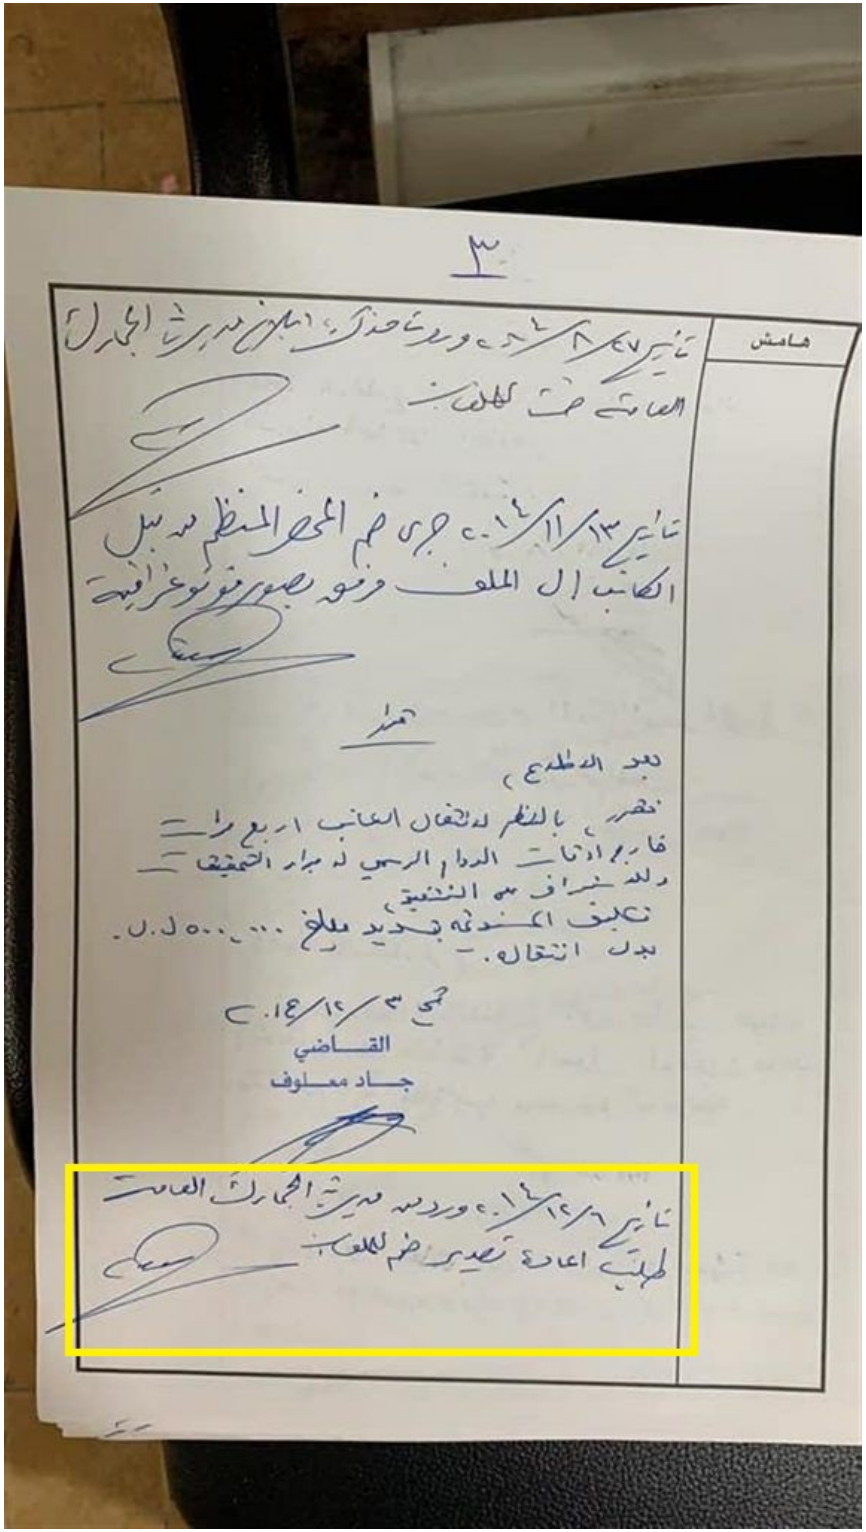 ٣
هامش
تاريخ ٢٧/٨/٢٠١٤ وردتنا مذكرة ابلاغ مديرية الجمارك
العامة ضمت للملف
تاريخ ١٣/١١/٢٠١٤ جرى ضم المحضر المنظم من قبل
الكاتب الى الملف مرفق بصور فوتوغرافية
قرار
بعد الاطلاع،
نقرر، بالنظر لانتقال الكاتب اربع مرات
خارج اوقات الدوام الرسمي لاجراء التحقيقات
وللاشراف على التنفيذ،
تكليف المستدعية بتسديد مبلغ ٥٠٠,٠٠٠ ل.ل.
بدل انتقاله.
في ٣/١٢/٢٠١٤
القاضي
جاد معلوف
تاريخ ٦/١٢/٢٠١٤ ورد من مديرية الجمارك العامة
طلب اعادة تصدير ضم للملف